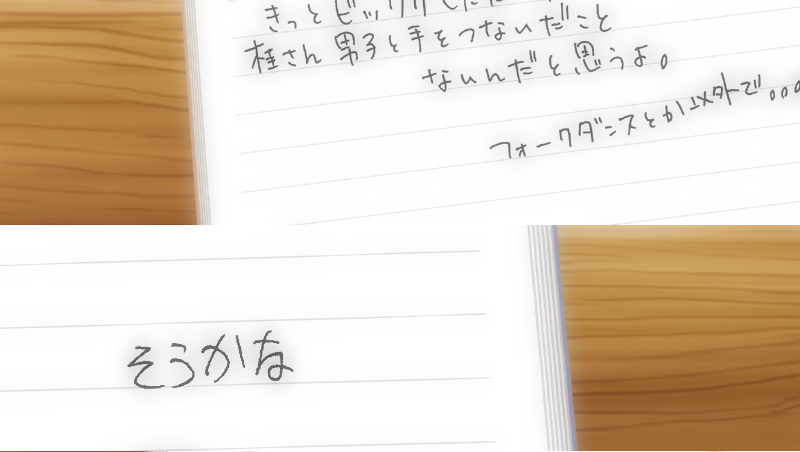 きっとビックリした
桂さん男子と手をつないだこと
ないんだと思うよ。
フォークダンスとか以外で。。。
そうかな